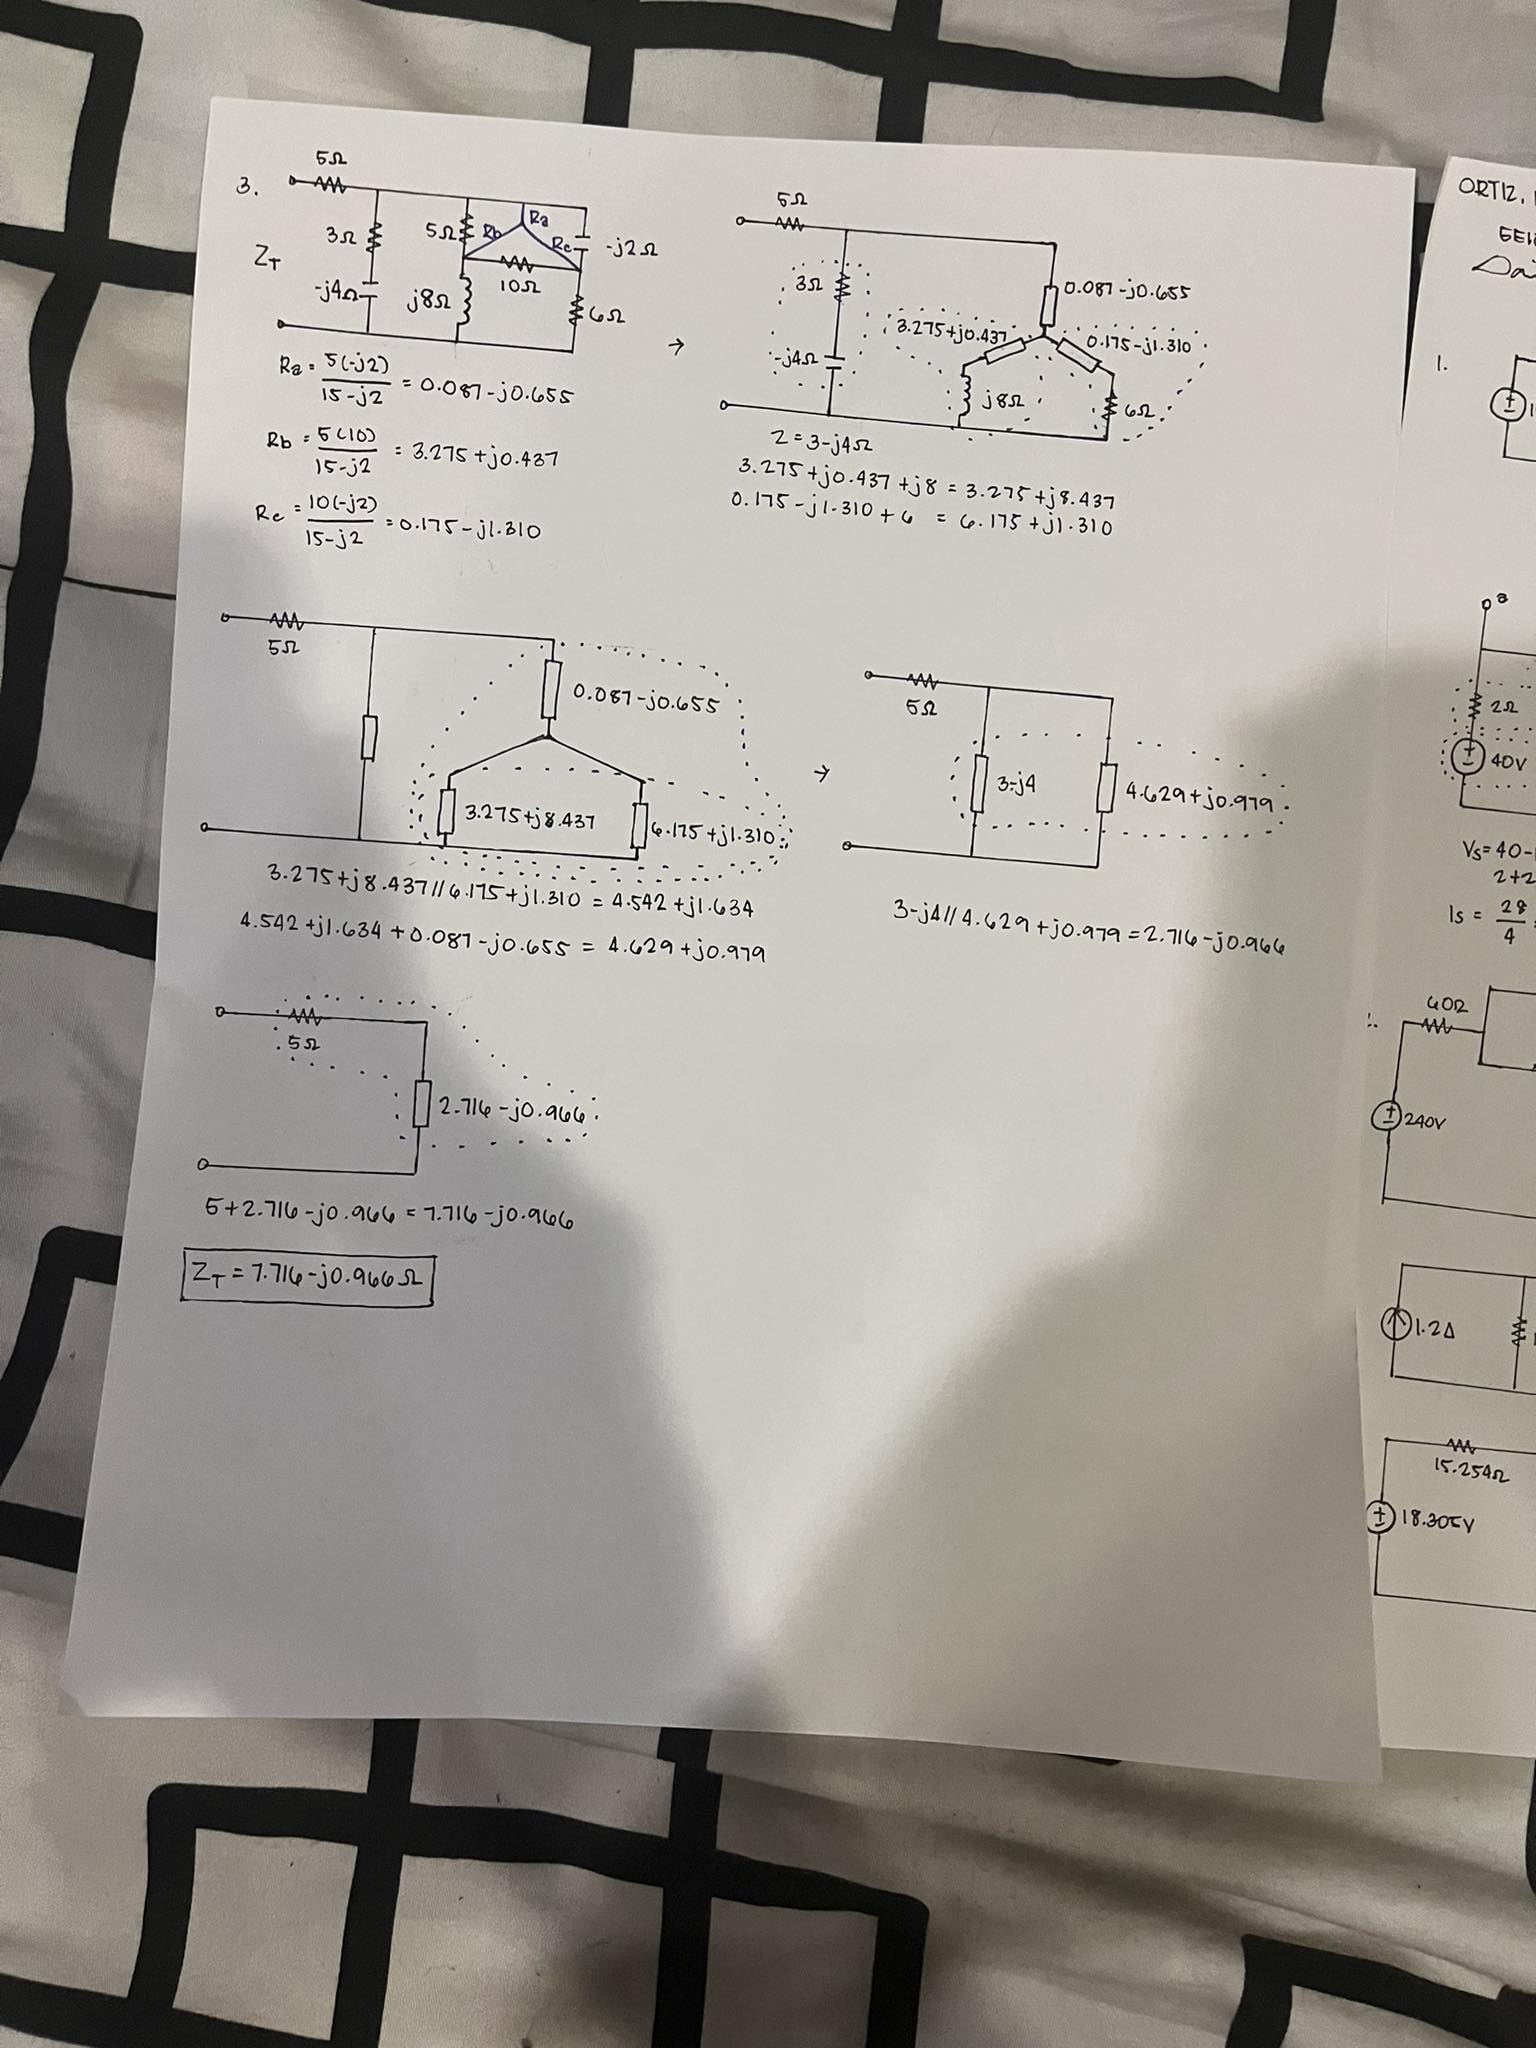 3.
5Ω
3Ω
-j4Ω
ZT
5Ω
Rb
Ra
Rc
-j2Ω
10Ω
j8Ω
6Ω
Ra = 5(-j2) / 15-j2 = 0.087-j0.655
Rb = 5(10) / 15-j2 = 3.275+j0.437
Rc = 10(-j2) / 15-j2 = 0.175-j1.310
→
5Ω
3Ω
-j4Ω
0.087-j0.655
3.275+j0.437
0.175-j1.310
j8Ω
6Ω
Z=3-j4Ω
3.275+j0.437+j8 = 3.275+j8.437
0.175-j1.310+6 = 6.175+j1.310
5Ω
0.087-j0.655
3.275+j8.437
6.175+j1.310
3.275+j8.437//6.175+j1.310 = 4.542+j1.634
4.542+j1.634+0.087-j0.655 = 4.629+j0.979
→
5Ω
3-j4
4.629+j0.979
3-j4//4.629+j0.979=2.716-j0.966
5Ω
2.716-j0.966
5+2.716-j0.966=7.716-j0.966
ZT=7.716-j0.966Ω
ORTIZ,
1.
a
2Ω
40V
Vs=40-
2+2
Is = 28 / 4
40Ω
240V
1.2A
15.254Ω
18.305V